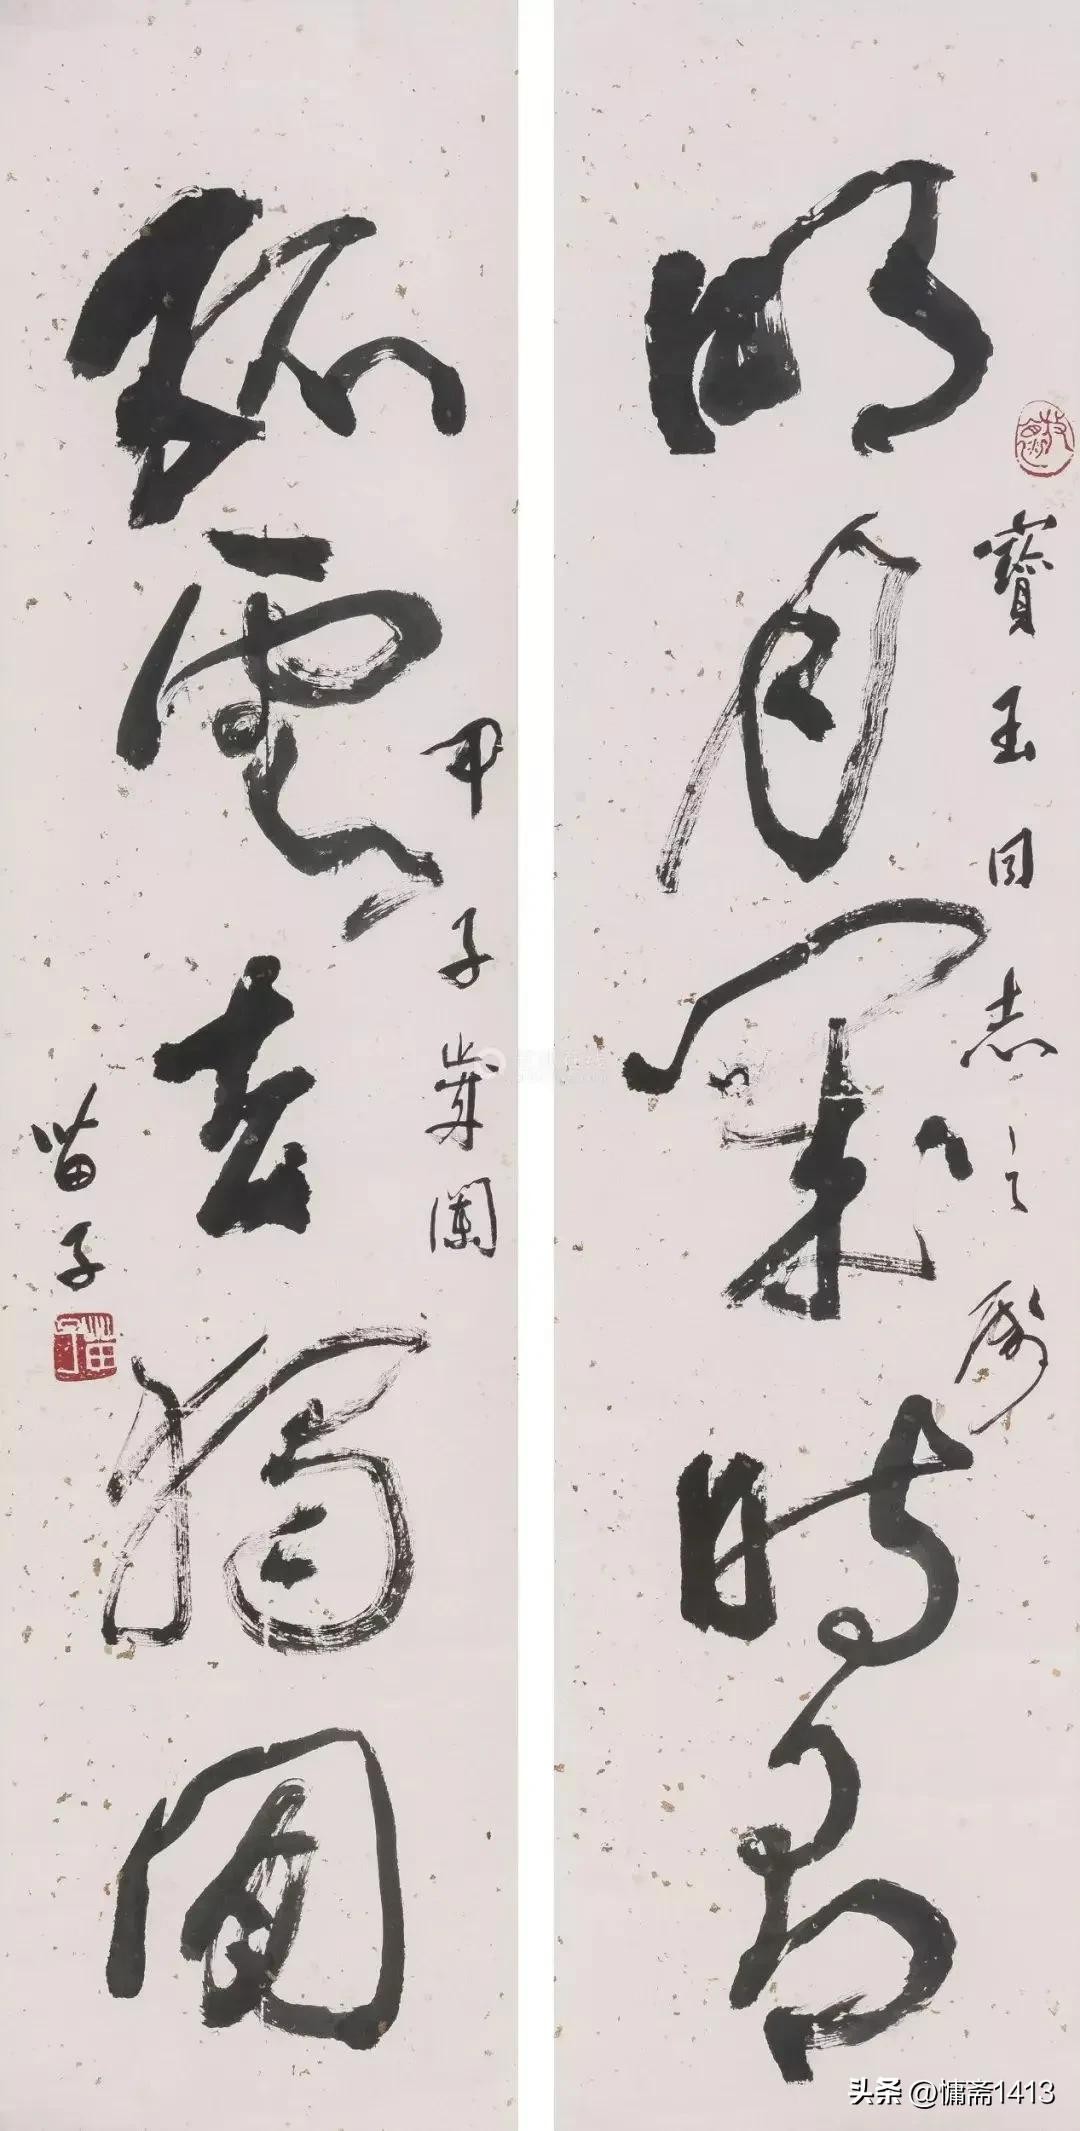 明月幾時有
寶玉同志之屬
孤雲去獨閒
甲子歲闌
苗子
苗子
头条 @慵斋1413